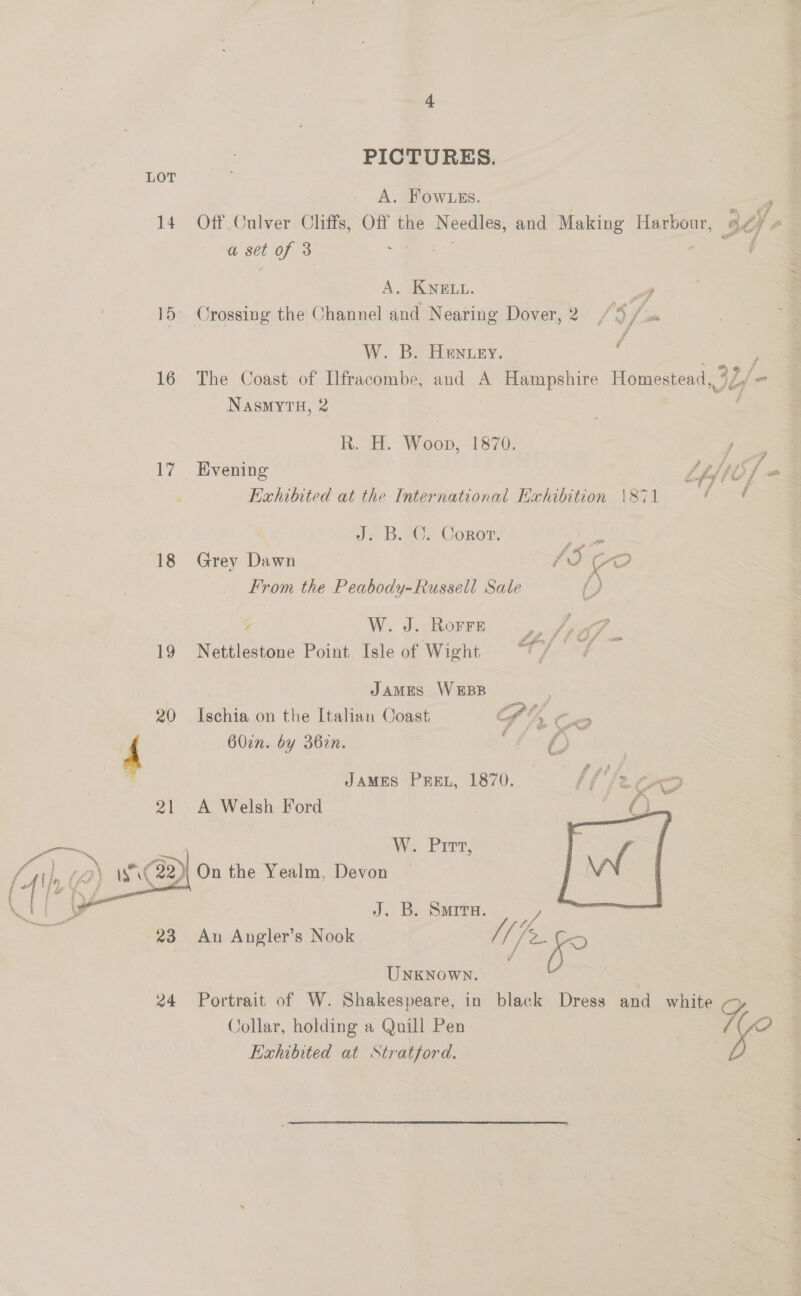 4
PICTURES.
LOT
A. FOWLES.
14 Off Culver Cliffs, Off the Needles, and Making Harbour,
a set of 3
A. KNELL.
15 Crossing the Channel and Nearing Dover, 2
W. B. HENLEY.
16 The Coast of Ilfracombe, and A Hampshire Homestead,
NASMYTH, 2
R. H. WOOD, 1870.
17 Evening
Exhibited at the International Exhibition 1871
J. B. C. COROT.
18 Grey Dawn
From the Peabody-Russell Sale
W. J. ROFFE
19 Nettlestone Point Isle of Wight
JAMES WEBB
20 Ischia on the Italian Coast
60in. by 36in.
JAMES PEEL, 1870.
21 A Welsh Ford
W. PITT,
22 On the Yealm, Devon
W
J. B. SMITH.
23 An Angler's Nook
UNKNOWN.
24 Portrait of W. Shakespeare, in black Dress and white
Collar, holding a Quill Pen
Exhibited at Stratford.